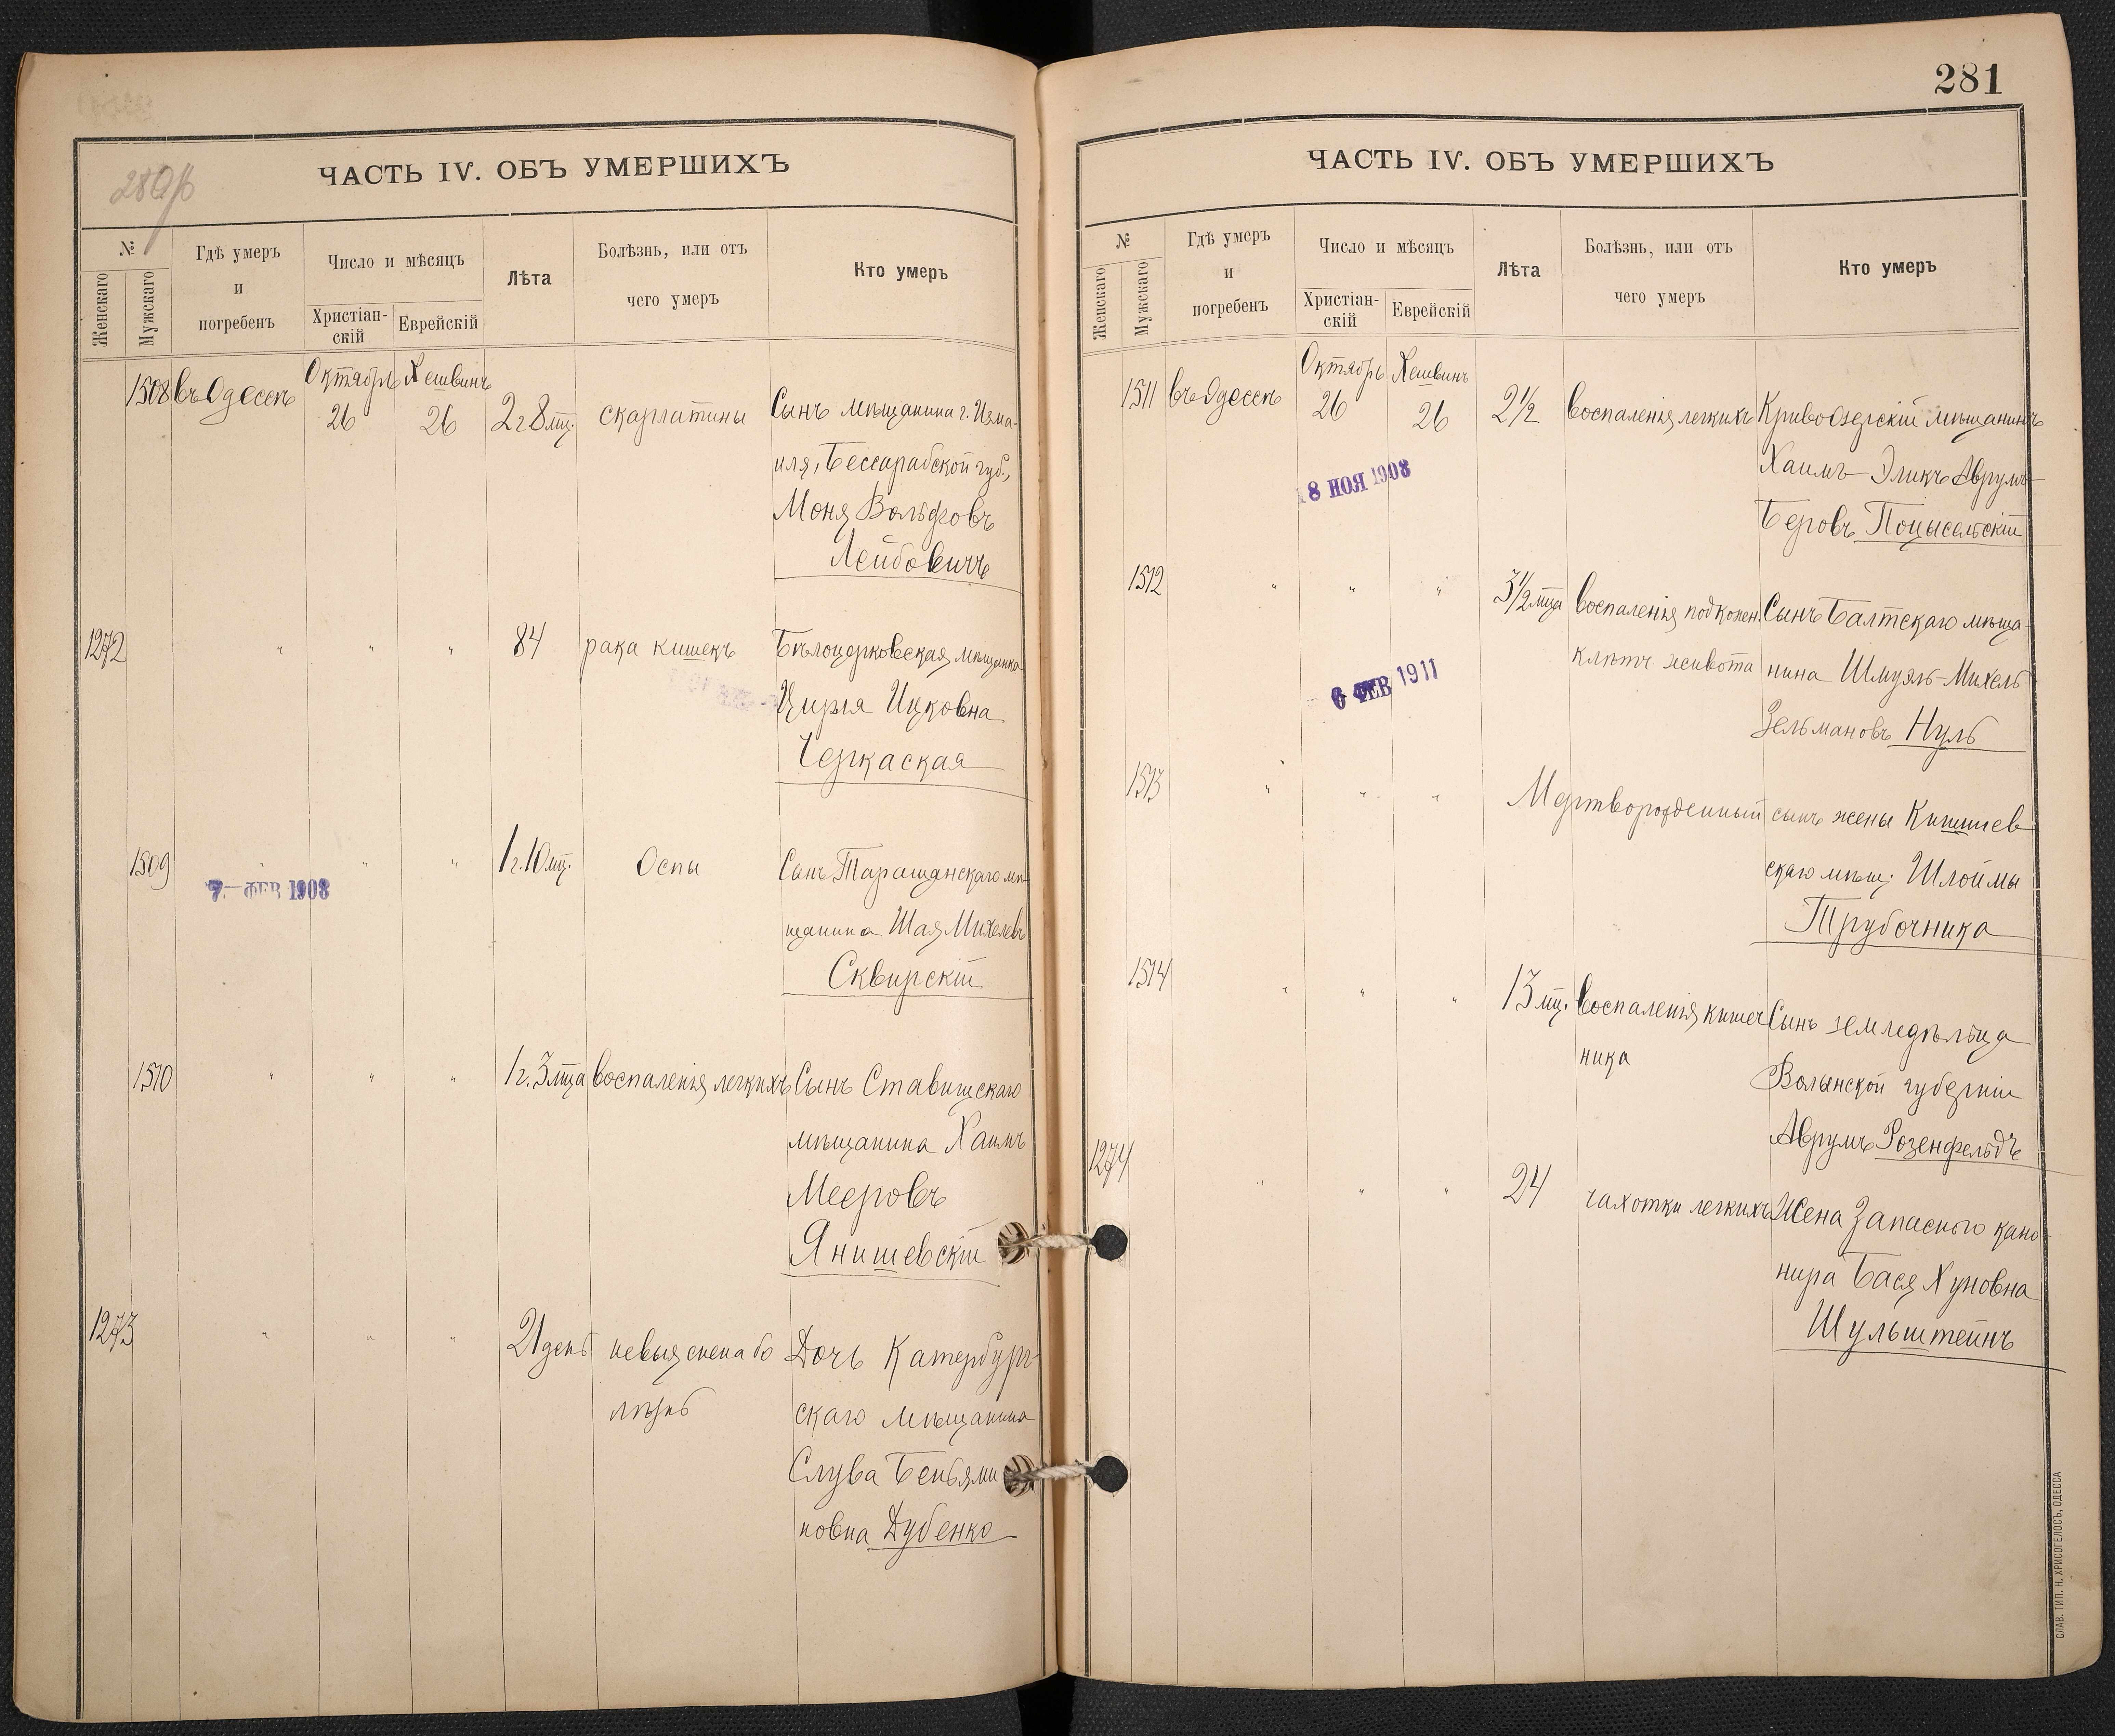 280/б
ЧАСТЬ IV. ОБЪ УМЕРШИХЪ
№
Женскаго
Мужскаго
Гдѣ умеръ
и
погребенъ
Число и мѣсяцъ
Христіан-
скій
Еврейскій
Лѣта
Болѣзнь, или отъ
чего умеръ
Кто умеръ
1508 въ Одессѣ Октябрь 26 Хешвинъ 26 2 г 8 мц. скарлатины Сынъ мѣщанина г. Изма-
иля, Бессарабской губ.,
Моня Вольфовъ
Лейбовичъ
1272 " " " 84 рака кишекъ Бѣлоцерковская мѣщанка
Цирля Ицковна
Черкаская
1509 " " " 1 г. 10 мц. Оспы Сынъ Таращанскаго мѣ-
щанина Шая Михелевъ
Сквирскій
7- ФЕВ 1908
1510 " " " 1 г. 3 мца воспаленія легкихъ Сынъ Ставищскаго
мѣщанина Хаимъ
Мееровъ
Янишевскій
1273 " " " 21 день невыяснена бо
лѣзнь
Дочь Катербург-
скаго мѣщанина
Слува Беньями
новна Дубенко
281
ЧАСТЬ IV. ОБЪ УМЕРШИХЪ
№
Женскаго
Мужскаго
Гдѣ умеръ
и
погребенъ
Число и мѣсяцъ
Христіан-
скій
Еврейскій
Лѣта
Болѣзнь, или отъ
чего умеръ
Кто умеръ
1511 въ Одессѣ Октябрь 26 Хешвинъ 26 2½ воспаленія легкихъ Кривоозерскій мѣщанинъ
Хаимъ-Эликъ Аврумъ-
Беровъ Поцысельскій
8 НОЯ 1908
1512 " " " 3½ мца воспаленія подкожн.
клѣтч живота
Сынъ Балтскаго мѣща-
нина Шмуэль-Михель
Зельмановъ Нуль
6 ФЕВ 1911
1513 " " " Мертворожденный сынъ жены Кишинев-
скаго мѣщ. Шлоймы
Трубочника
1514 " " " 13 мц. воспаленія кишеч
ника
Сынъ земледѣльца
Волынской губерніи
Аврумъ Розенфельдъ
1274 " " " 24 чахотки легкихъ Жена Запасного кано-
нира Бася Хуновна
Шульштейнъ
СЛАВ. ТИП. Н. ХРИСОГЕЛОСЪ, ОДЕССА